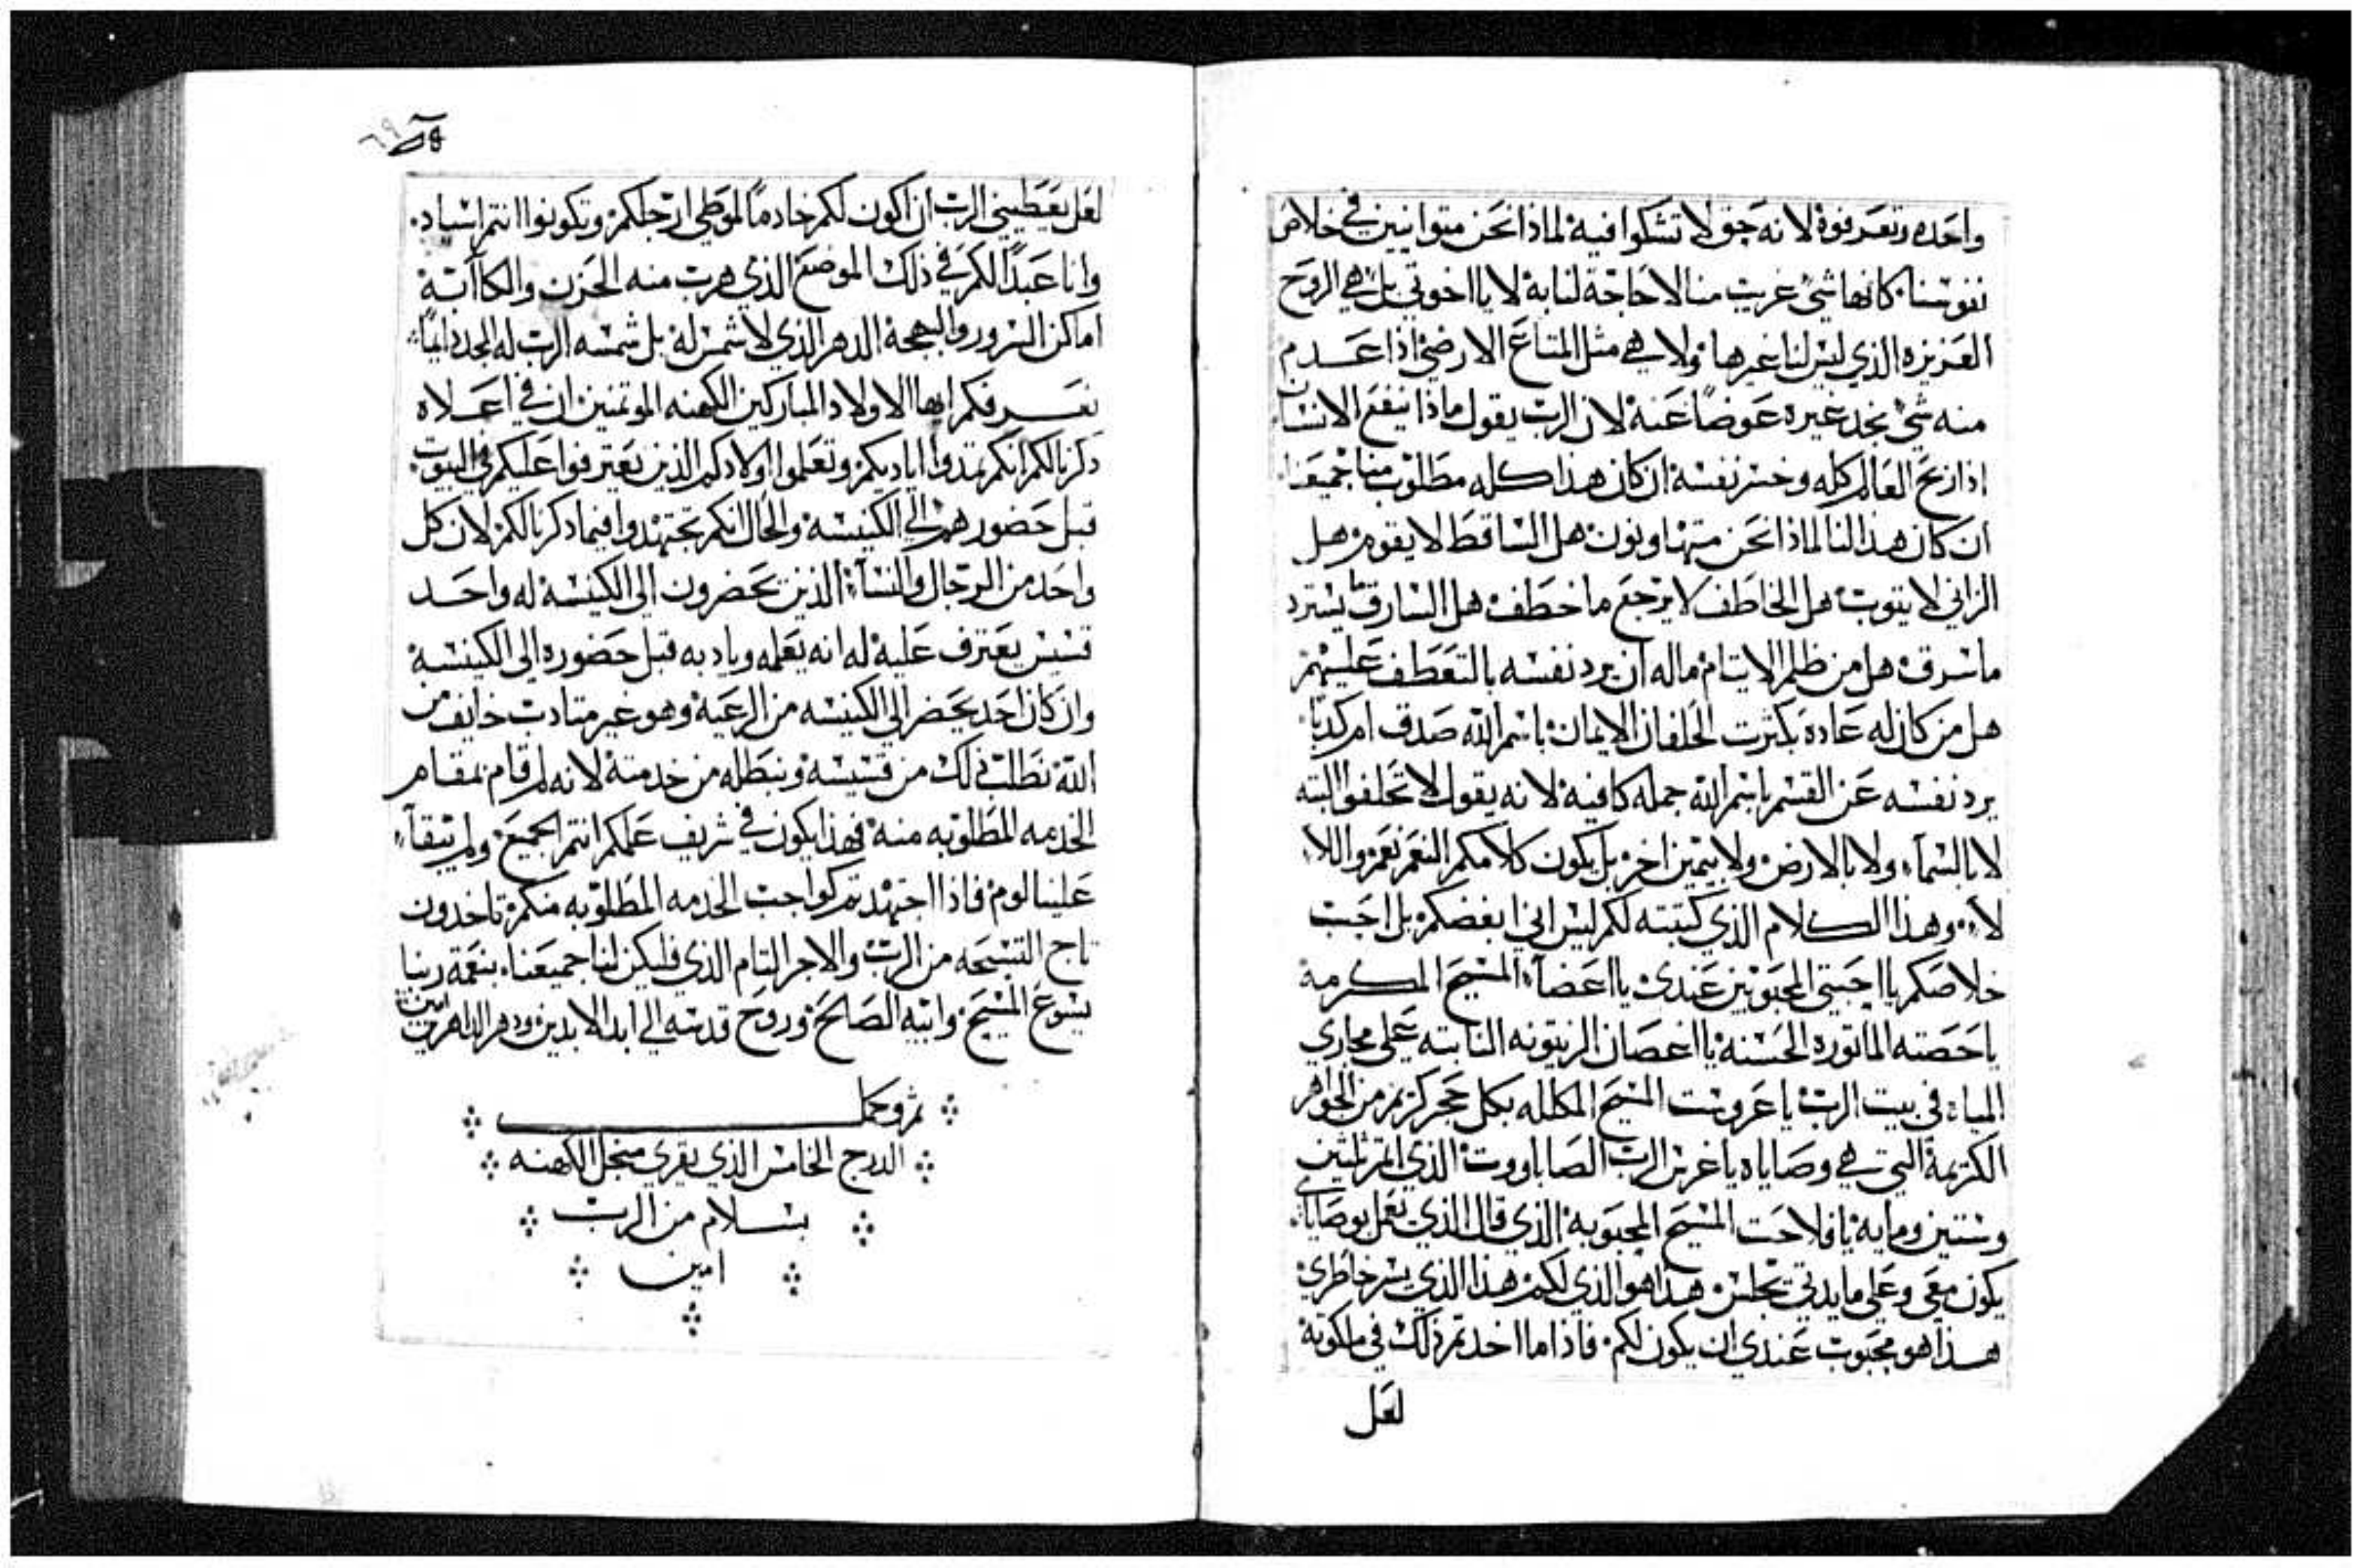 واحده وتعرفوه لانه حق لا تشكوا فيه لماذا نحن متوانيين في خلاص
نفوسنا كانها شي غريب منا لا حاجة لنا به لا يااخوتي بل هي الروح
العزيزه الذي ليس لنا غيرها ولا هي مثل المتاع الارضي اذا عدم
منه شي نجد غيره عوضاً عنه لان الرب يقول ماذا ينفع الانسان
اذا ربح العالم كله وخسر نفسه ان كان هذا كله مطلوب منا جميعنا
ان كان هذا لنا لماذا نحن متهاونون هل الساقط لا يقوم هل
الزاني لا يتوب هل الخاطف لا يرجع ما خطف هل السارق ما يسترد
ما سرق هل من ظلم الايتام ماله ان يرد نفسه بالتعطف عليهم
هل من كان له عاده بكثرت الحلفان الايمان باسم الله صدق ام كدباً
يرد نفسه عن القسم باسم الله جمله كافيه لانه يقول لا تحلفوا البته
لا بالسماء ولا بالارض ولا بيمين اخر بل يكون كلامكم النعم نعم واللاء
لاء وهذا الكلام الذي كتبته لكم ليس اني ابغضكم بل احب
خلاصكم يا احبتي المحبوبين عندي يا اعضاء المسيح المكرمة
يا حصته الماتوره الحسنه يا اغصان الزيتونه النابته علي مجاري
المياه في بيت الرب يا عروست المسيح المكلله بكل حجر كريم من الجواهر
الكريمة التي هي وصاياه يا غرس الرب الصاباووت الذي اثمر ثلثين
وستين ومايه يا فلاحت المسيح المحبوبه الذي قال الذي يعمل بوصاياي
يكون معي وعلي مايدتي يجلس هذا هو الذي لكم هذا الذي يسر خاطري
هذا هو محبوب عندي ان يكون لكم فاذا ما اخدتم ذلك في ملكوته
لعل
لعل يعطيني الرب ان اكون لكم خادماً لموطي ارجلكم وتكونوا انتم اسياد
وانا عبداً لكم في ذلك الموضع الذي هرب منه الحزن والكاآبة
اماكن السرور والبهجة الدهر الذي لا شمس له بل شمسه الرب له المجد دايماً
نعرفكم ايها الاولاد المباركين الكهنه الموتمنين ان في اعلاه
دكرنا لكم انكم تمدوا اياديكم وتعلموا اولادكم الذين يعترفوا عليكم في البيوت
قبل حضورهم الي الكنيسه والحال انكم تجتهدوا فيما دكرنا لكم لان كل
واحد من الرجال والنساء الذين يحضرون الي الكنيسه له واحد
قسيس يعترف عليه له انه يعلمه ويادبه قبل حضوره الي الكنيسه
وان كان احد يحضر الي الكنيسه من الرعيه وهو غير متادب خايف من
الله نطلب ذلك من قسيسه ونبطله من خدمته لانه لم قام بمقام
الخدمه المطلوبه منه فهذا يكون في شريف علمكم انتم الجميع ولم يبقاء
علينا لوم فاذا اجتهدتم كواجب الخدمه المطلوبه منكم تاخدون
تاج التسبحه من الرب والاجر التام الذي فليكن لنا جميعنا بنعمة ربنا
يسوع المسيح وابيه الصالح وروح قدسه الي ابد الابدين ودهر الداهرين امين
تم وكمل
الدرج الخامس الذي يقري منجل الكهنه
بسلام من الرب
امين